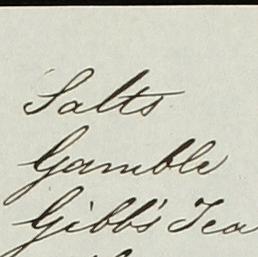 Salts
Gamble
Gibb's Tea